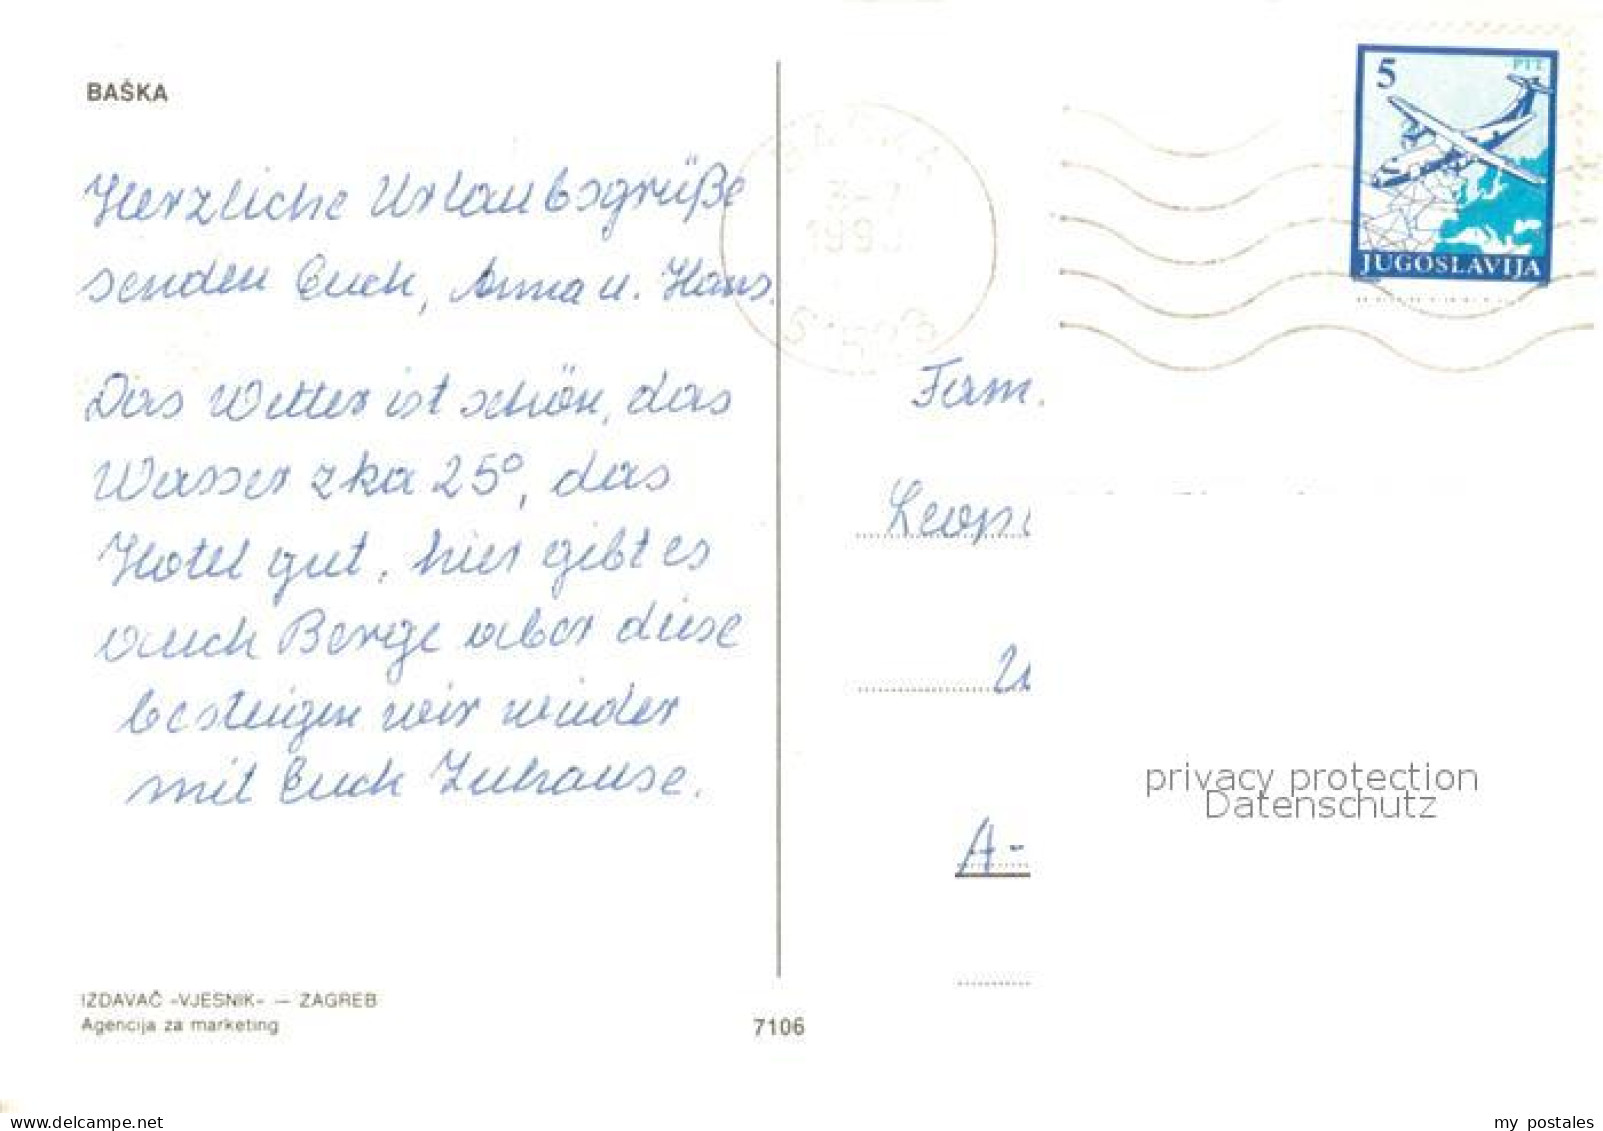 BAŠKA
Herzliche Urlaubsgrüße
senden Euch, Anna u. Hans.
Das Wetter ist schön, das
Wasser zka 25°, das
Hotel gut, hier gibt es
auch Berge aber diese
besteigen wir wieder
mit Euch Zuhause.
IZDAVAČ «VJESNIK» — ZAGREB
Agencija za marketing
7106
BAŠKA
199
51523
5
PTT
JUGOSLAVIJA
Fam.
Leopo
A-
privacy protection
Datenschutz
delcampe.net
my_postales